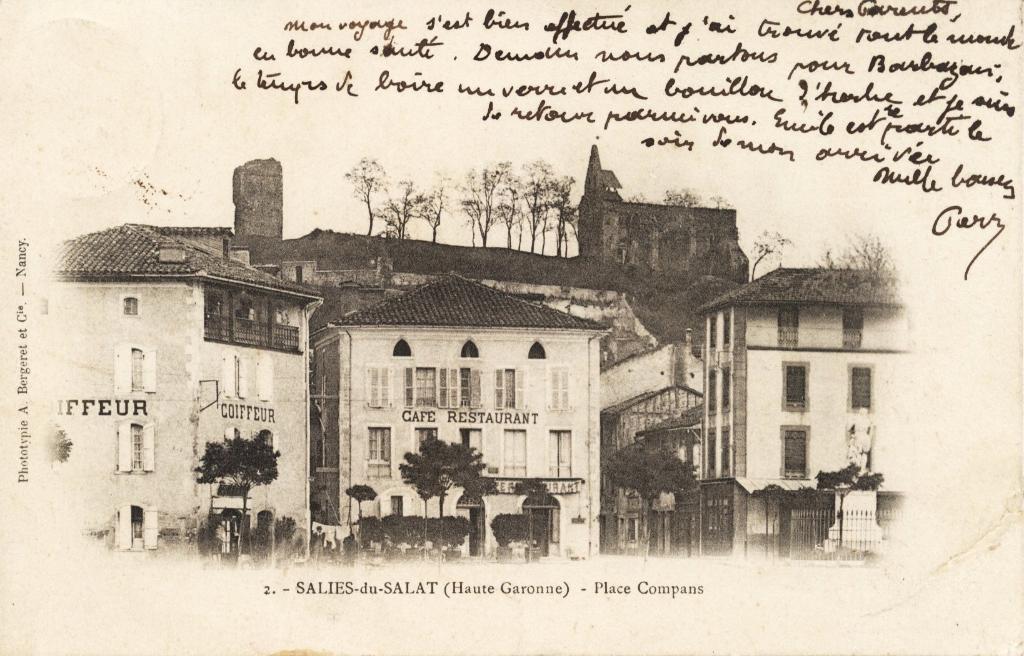 Chers Parents,
mon voyage s'est bien effectué et j'ai trouvé tout le monde
en bonne santé. Demain nous partons pour Barbazan,
le temps de boire un verre et un bouillon d'herbe et je suis
de retour parmi vous. Emile est reparti le
soir de mon arrivée
Mille baisers
COIFFEUR
IFFEUR
CAFÉ RESTAURANT
Phototypie A. Bergeret et Cie. — Nancy.
2. - SALIES-du-SALAT (Haute Garonne) - Place Compans